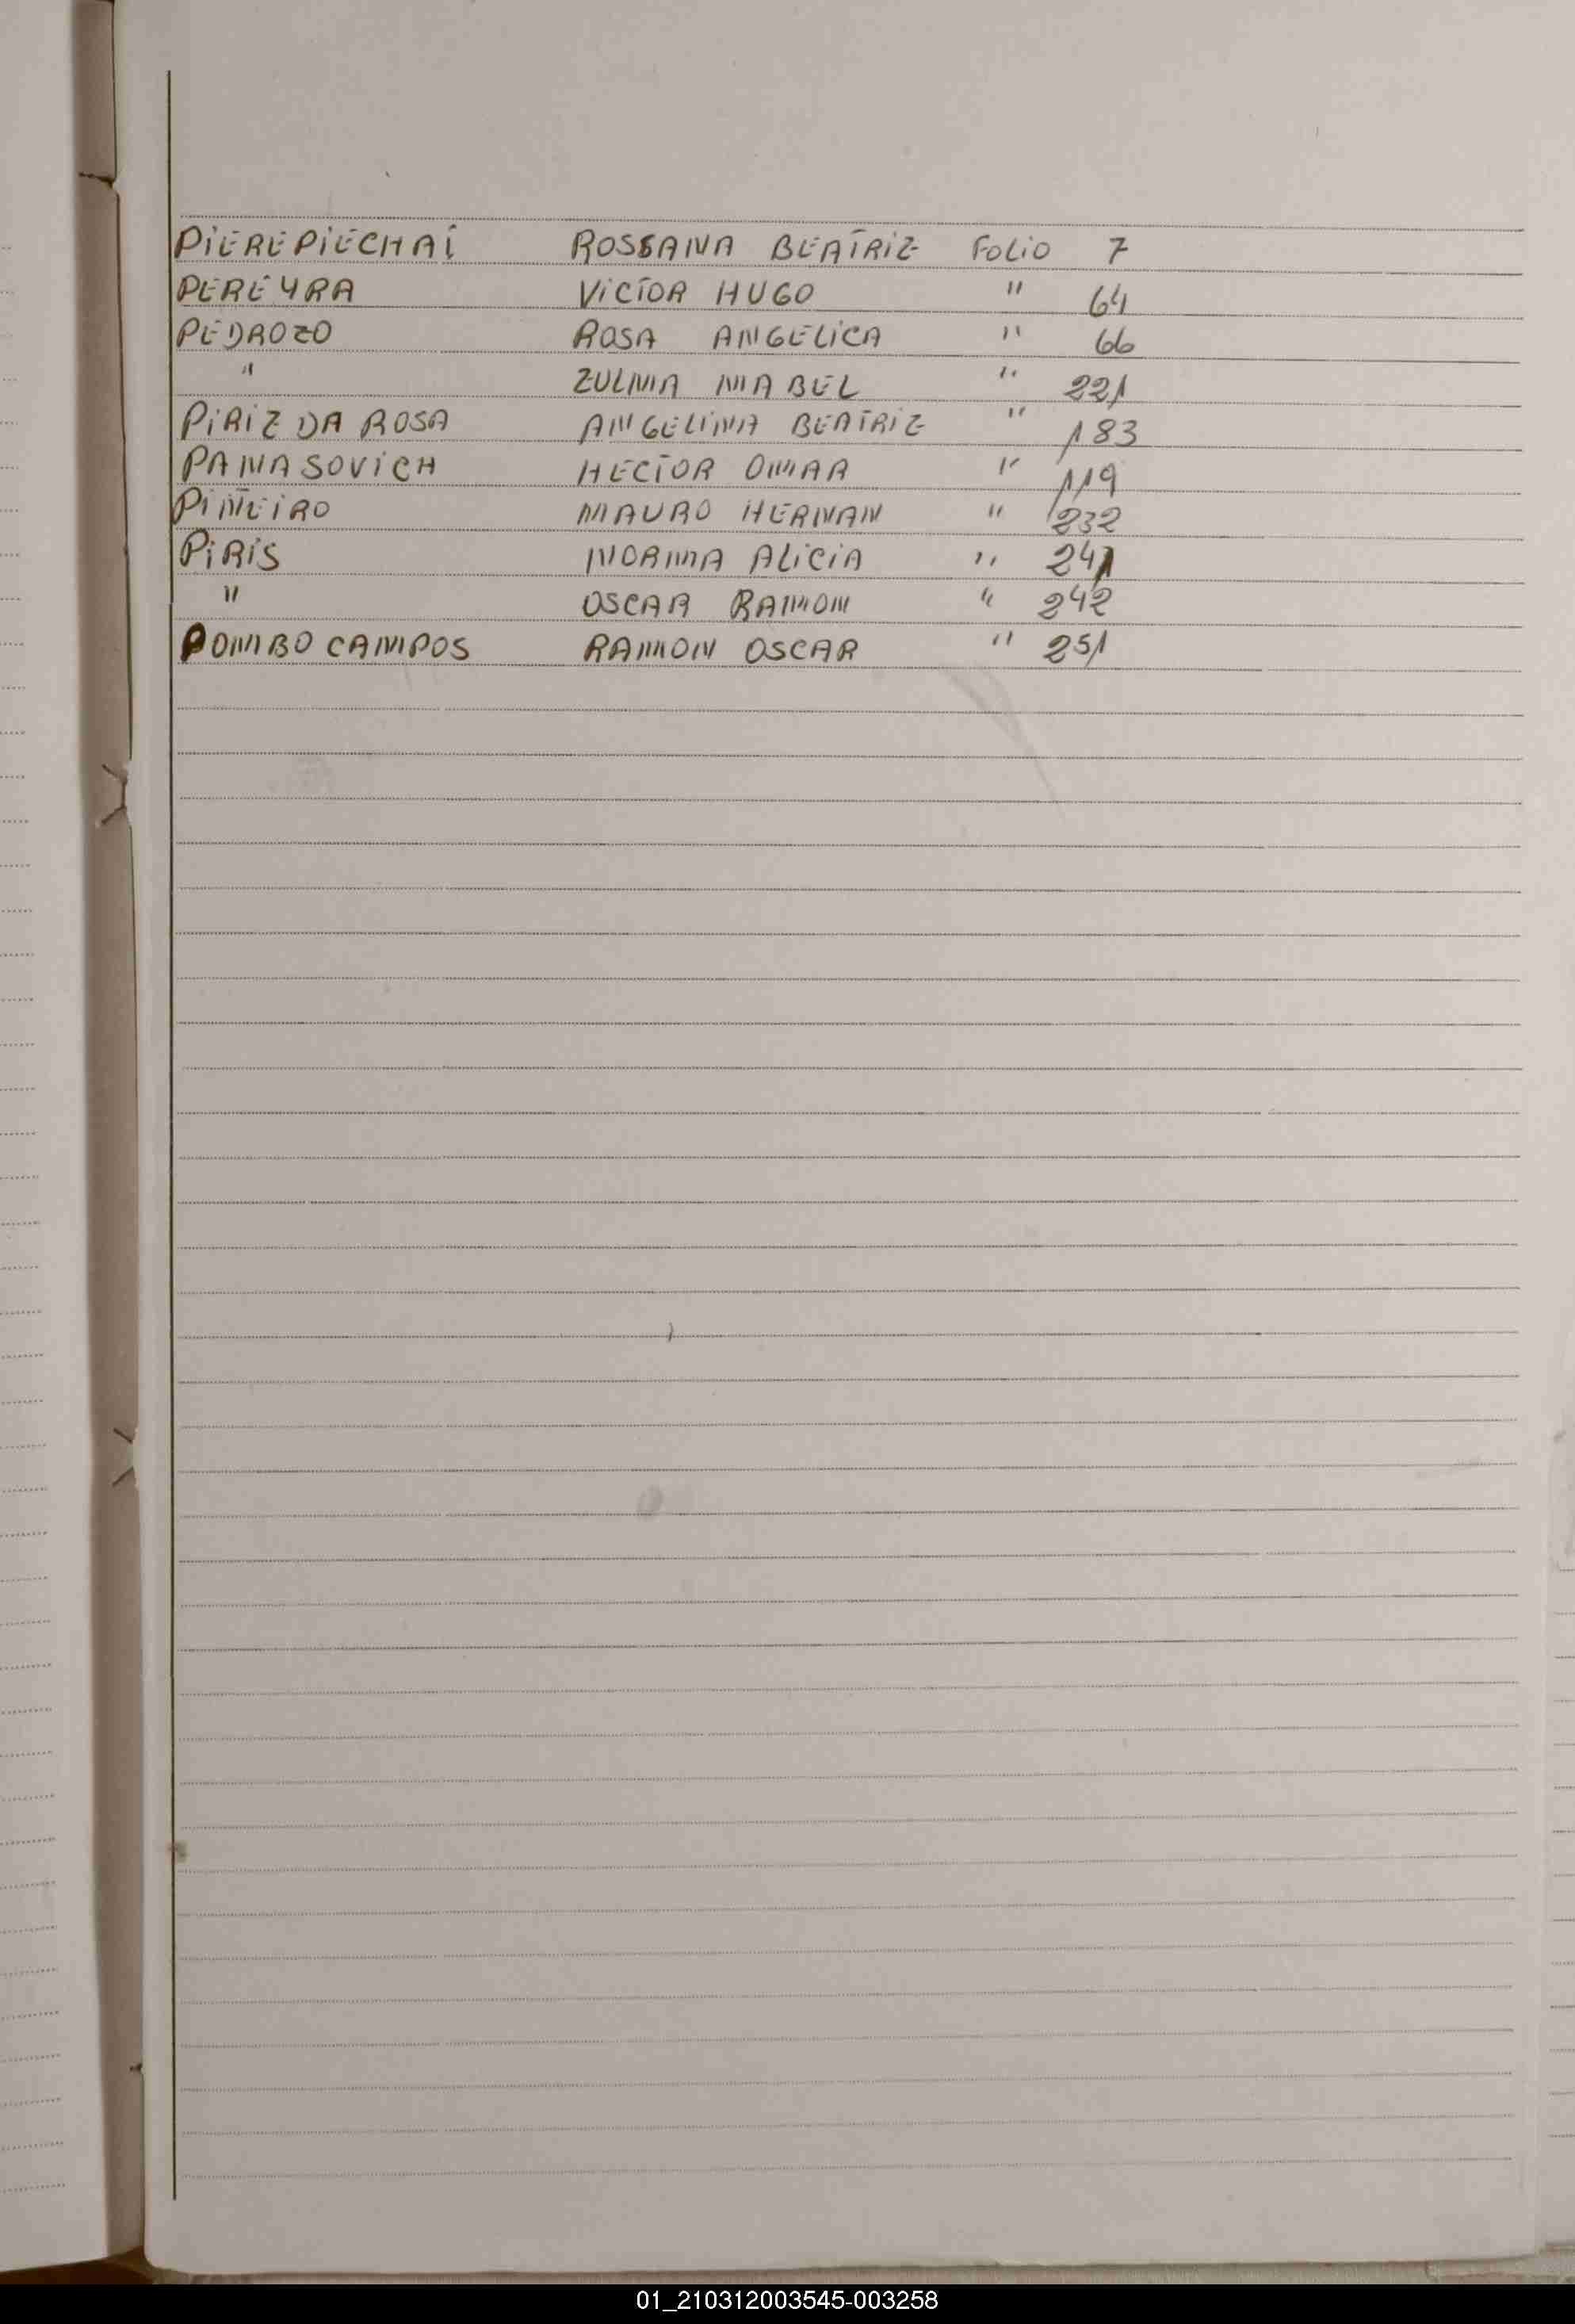 PIEREPIECHAI ROSSANA BEATRIZ FOLIO 7
PEREYRA VICTOR HUGO " 64
PEDROZO ROSA ANGELICA " 66
" ZULMA MABEL " 221
PIRIZ DA ROSA ANGELINA BEATRIZ " 183
PANASOVICH HECTOR OMAR " 119
PIÑEIRO MAURO HERNAN " 232
PIRIS NORMA ALICIA " 241
" OSCAR RAMON " 242
POMBO CAMPOS RAMON OSCAR " 251
01_210312003545-003258